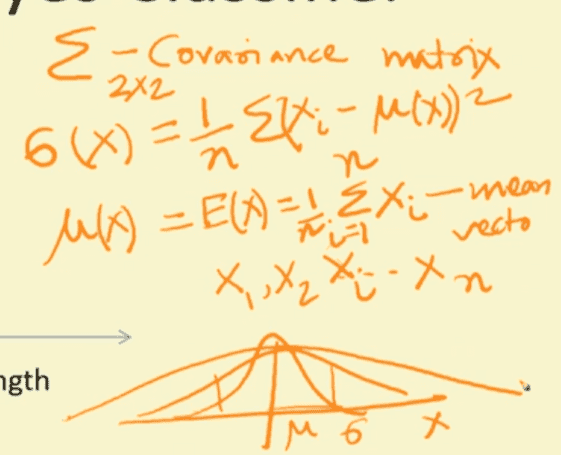 Σ - Covariance matrix
2x2
σ(x) = 1/n Σ(xᵢ - μ(x))²
μ(x) = E(x) = 1/n Σⁿᵢ₌₁ xᵢ - mean
vecto
x₁, x₂ xᵢ - xₙ
ngth
μ σ x